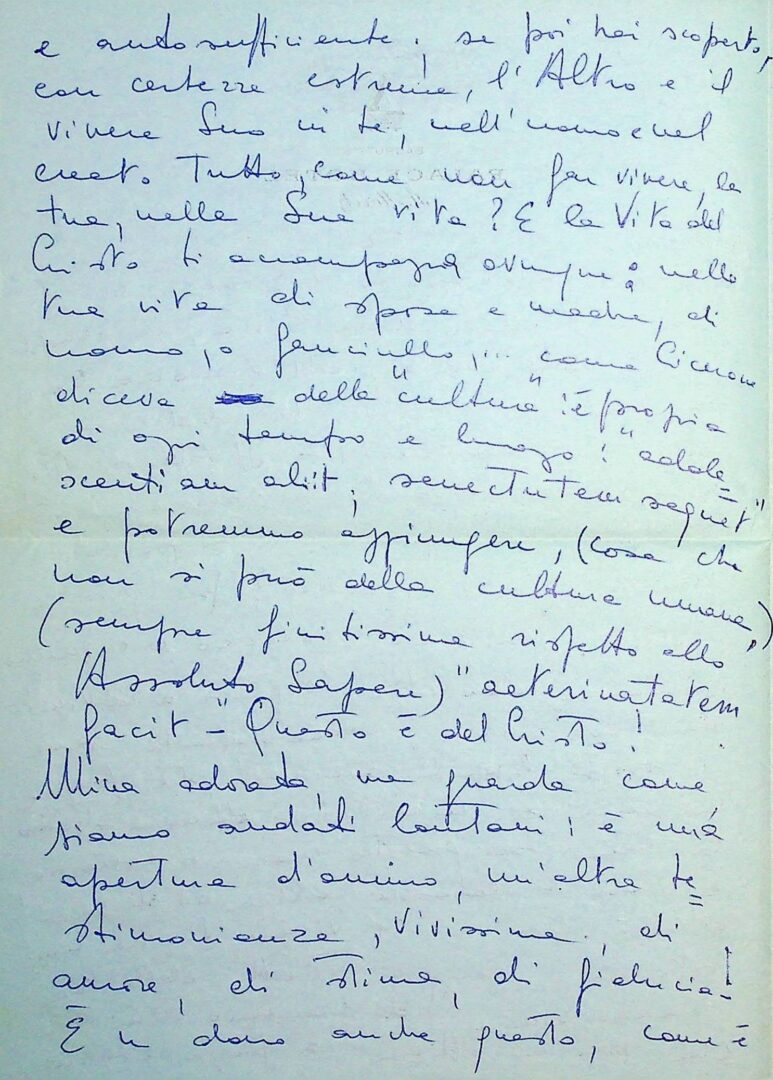 e autosufficiente; se poi hai scoperto,
con certezze estreme, l'Altro e il
vivere Suo in te, nell'uomo e nel
creato Tutto, come non far vivere, la
tua, nella Sua vita? E la Vita del
Cristo ti accompagna ovunque: nella
tua vita di sposa e madre, di
uomo, o fanciullo,... come Cicerone
diceva della "cultura": è propria
di ogni tempo e luogo: "adole=
scentiam alit; senectutem" 
e potremmo aggiungere, (cosa che
non si può della cultura umana,)
(sempre finitissima rispetto allo
Assoluto Sapere) "aeterinatatem
facit" - Questo è del Cristo!
Mina adorata, ma guarda come
siamo andati lontani: è una
apertura d'animo, un'altra te=
stimonianza, vivissima, di
amore, di stima, di fiducia!
È un dono anche questo, come è